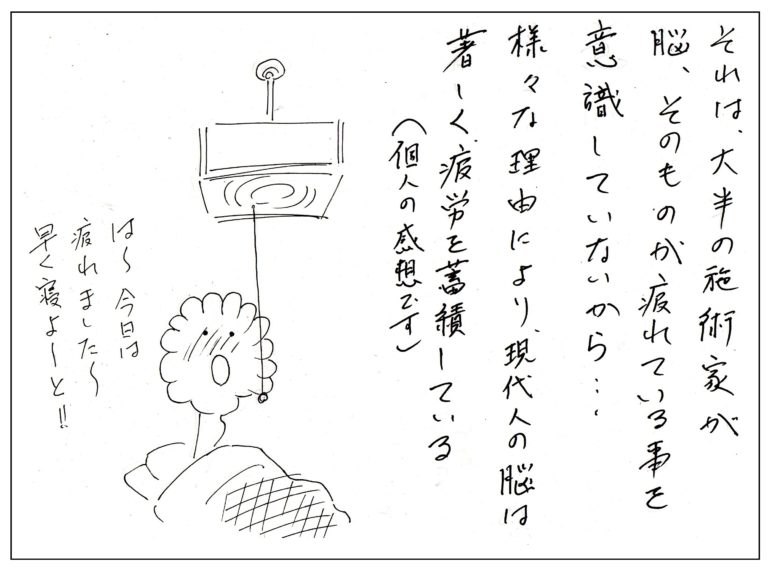 それは、大半の施術家が
脳、そのものが疲れている事を
意識していないから・・・
様々な理由により、現代人の脳は
著しく疲労を蓄積している
（個人の感想です）
は〜今日は
疲れました〜
早く寝よーと!!